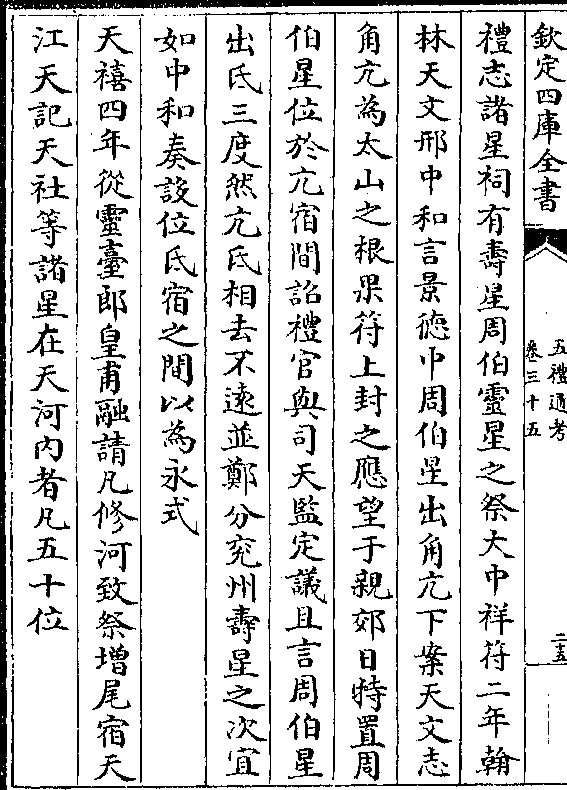 欽定四庫全書
五禮通考
卷三十五
二五
禮志諸星祠有壽星周伯靈星之祭大中祥符二年翰
林天文邢中和言景德中周伯星出角亢下案天文志
角亢為太山之根果符上封之應望于親郊日特置周
伯星位於亢宿間詔禮官與司天監定議且言周伯星
出氐三度然亢氐相去不遠並鄭分兖州壽星之次宜
如中和奏設位氐宿之間以為永式
天禧四年從靈臺郎皇甫融請凡修河致祭增尾宿天
江天記天社等諸星在天河内者凡五十位